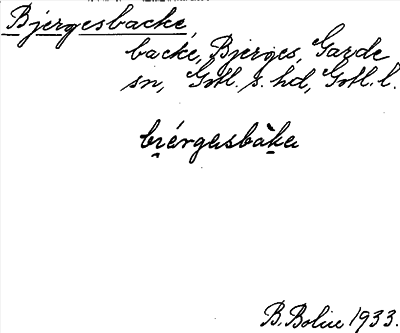 Bjergesbacke,
backe, Bjerges, Garde
sn, Gotl. s. hd, Gotl. l.
B. Bolin 1933.